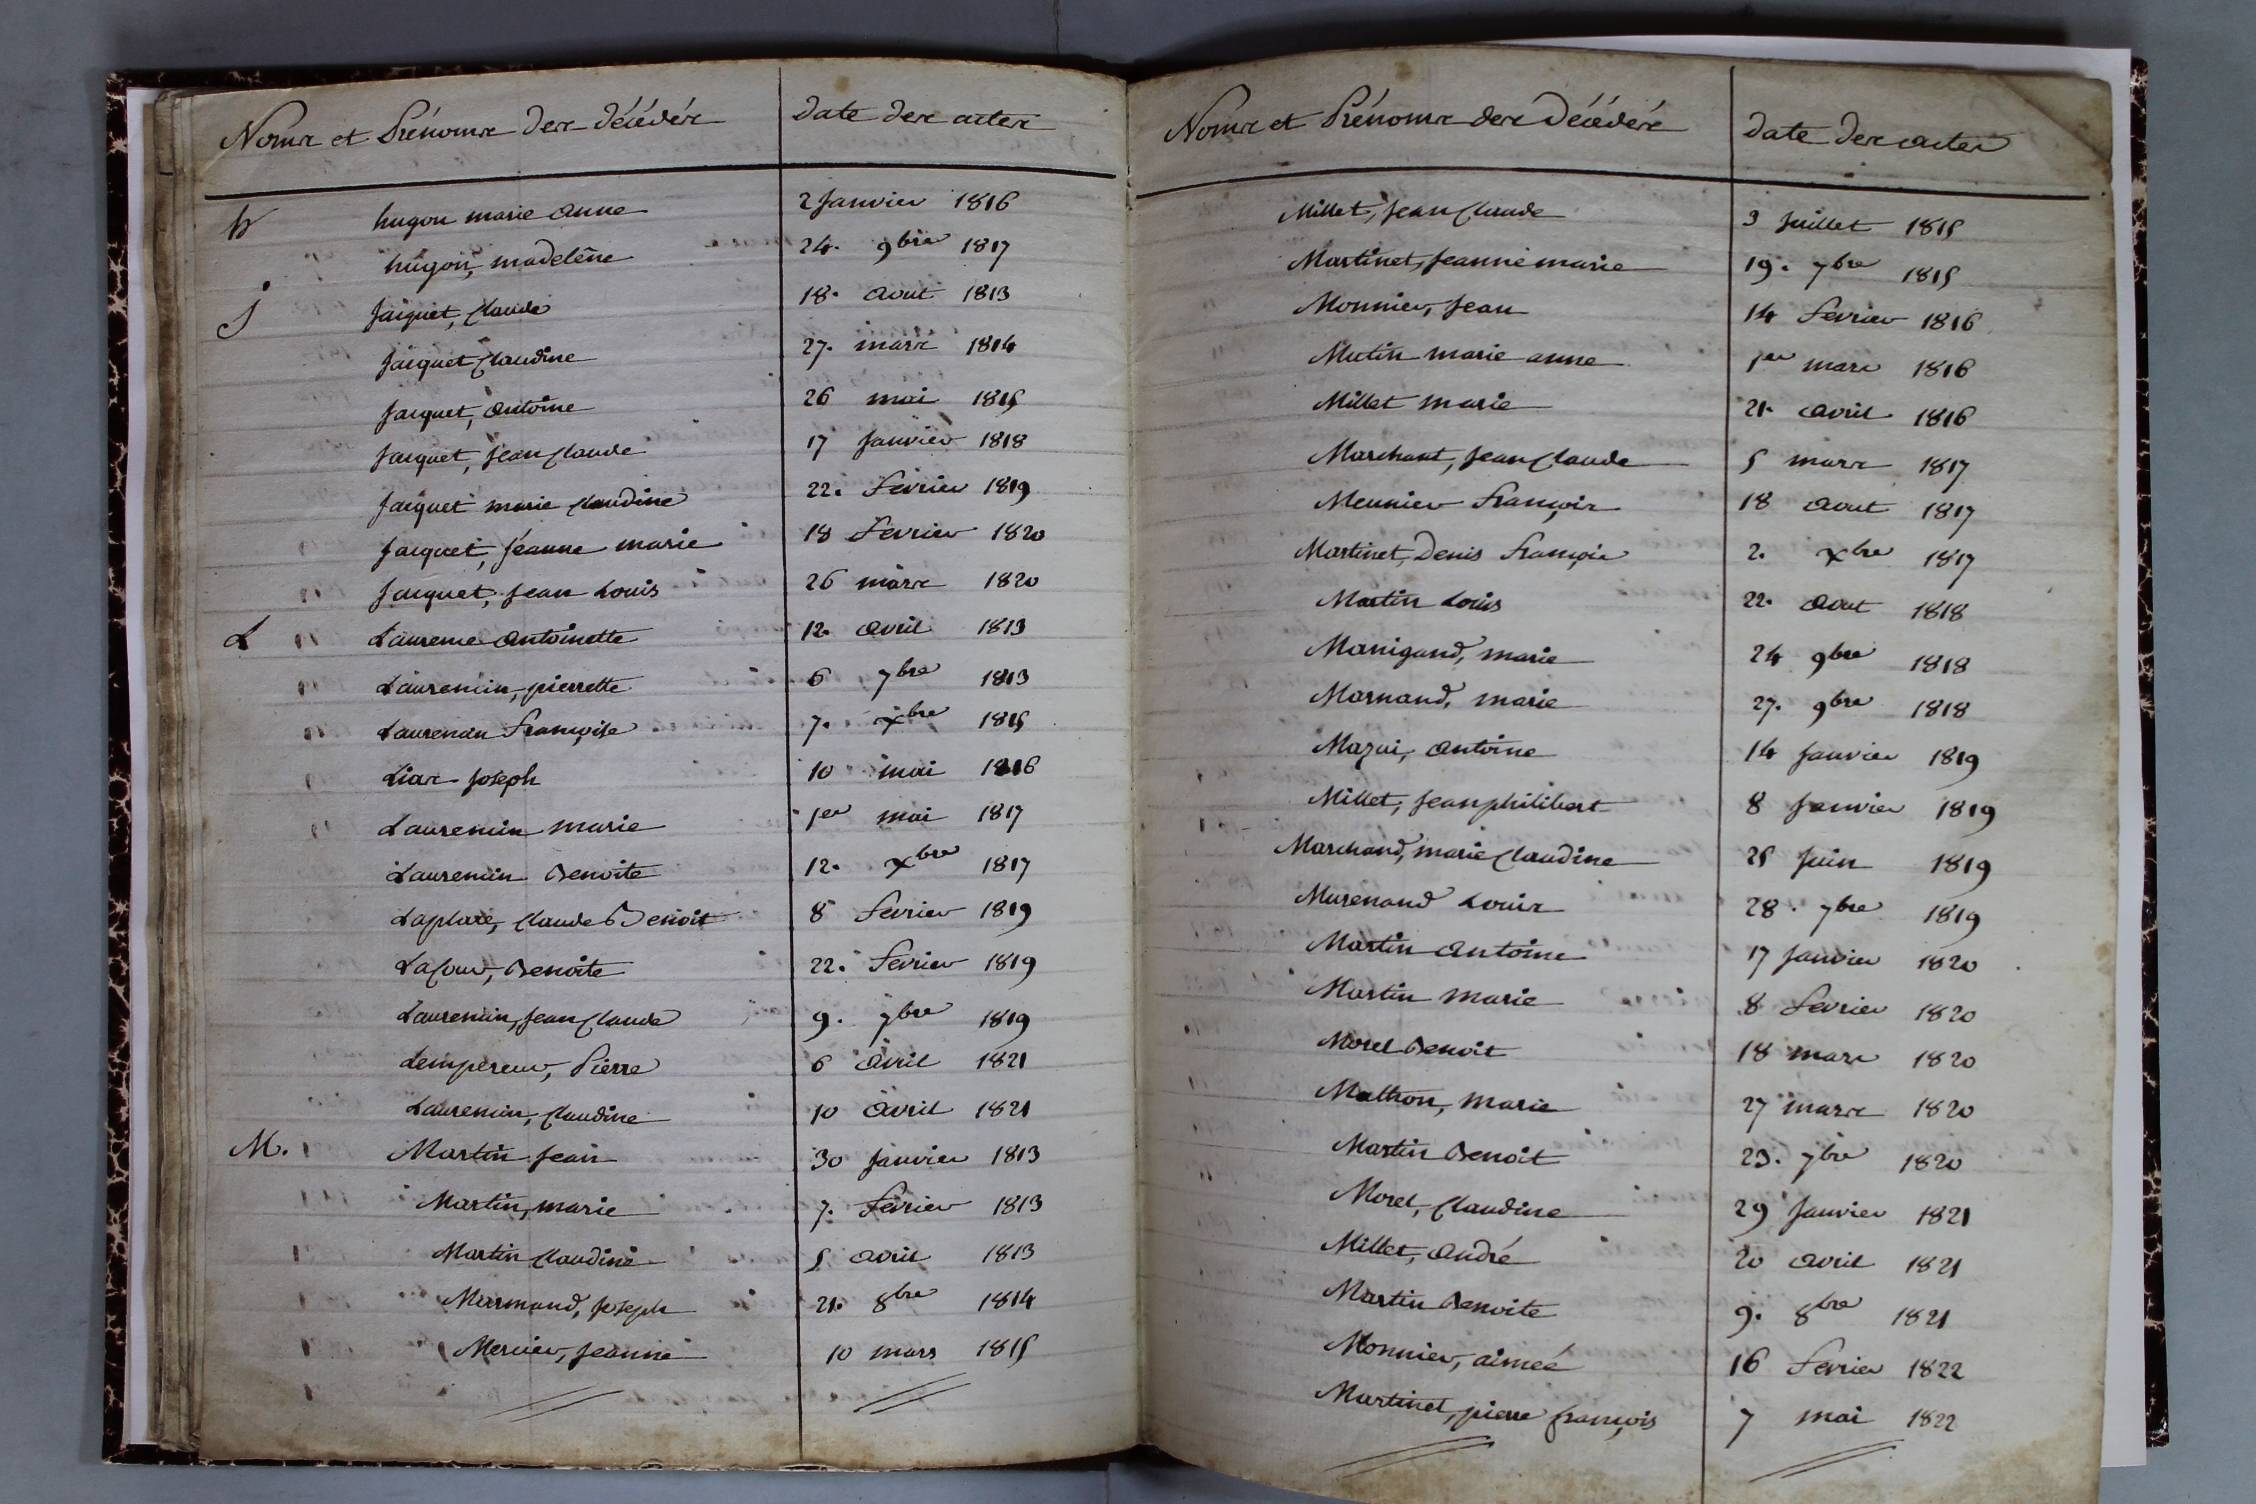 Noms et Prénoms des décédés date des actes
h hugon marie anne 2 Janvier 1816
hugon, madeleine 24. 9bre 1817
J Jacquet, Claude 18. aout 1813
Jacquet Claudine 27. mars 1814
Jacquet, antoine 26 mai 1815
Jacquet, Jean Claude 17 Janvier 1818
Jacquet marie Claudine 22. fevrier 1819
Jacquet, Jéanne marie 18 fevrier 1820
Jacquet, Jean Louis 26 mars 1820
L Laurence antoinette 12. avril 1813
Laurencin, pierrette 6 7bre 1813
Laurencin Françoise 7. xbre 1815
Liar Joseph 10 mai 1816
Laurencin marie 1er mai 1817
Laurencin Benoite 12. xbre 1817
Laplace, Claude Benoit 8 fevrier 1819
Lacour, Benoite 22. fevrier 1819
Laurencin, Jean Claude 9. 7bre 1819
Lempereur, Pierre 6 avril 1821
Laurencin, Claudine 10 avril 1821
M. Martin Jean 30 Janvier 1813
Martin, marie 7. fevrier 1813
Martin Claudine 5 avril 1813
Marmand, Joseph 21. 8bre 1814
Mercier, Jeanne 10 mars 1815
Noms et Prénoms des Décédés date des actes
Millet, Jean Claude 3 Juillet 1815
Martinet, Jeanne marie 19. 7bre 1815
Monnier, Jean 14 fevrier 1816
Mutin marie anne 1er mars 1816
Millet marie 21. avril 1816
Marchant, Jean Claude 5 mars 1817
Meunier François 18 aout 1817
Martinet, Denis François 2. xbre 1817
Martin Louis 22. aout 1818
Manigand, marie 24 9bre 1818
Marnand, marie 27. 9bre 1818
Mazui, antoine 14 Janvier 1819
Millet, Jean philibert 8 Janvier 1819
Marchand, marie Claudine 25 Juin 1819
Murenand Louis 28. 7bre 1819
Martin antoine 17 Janvier 1820
Martin marie 8 fevrier 1820
Morel Benoit 18 mars 1820
Mathon, marie 27 mars 1820
Martin Benoit 23. 7bre 1820
Morel, Claudine 29 Janvier 1821
Millet, andré 20 avril 1821
Martin Benoite 9. 8bre 1821
Monnier, aimée 16 fevrier 1822
Martinet, pierre françois 7 mai 1822